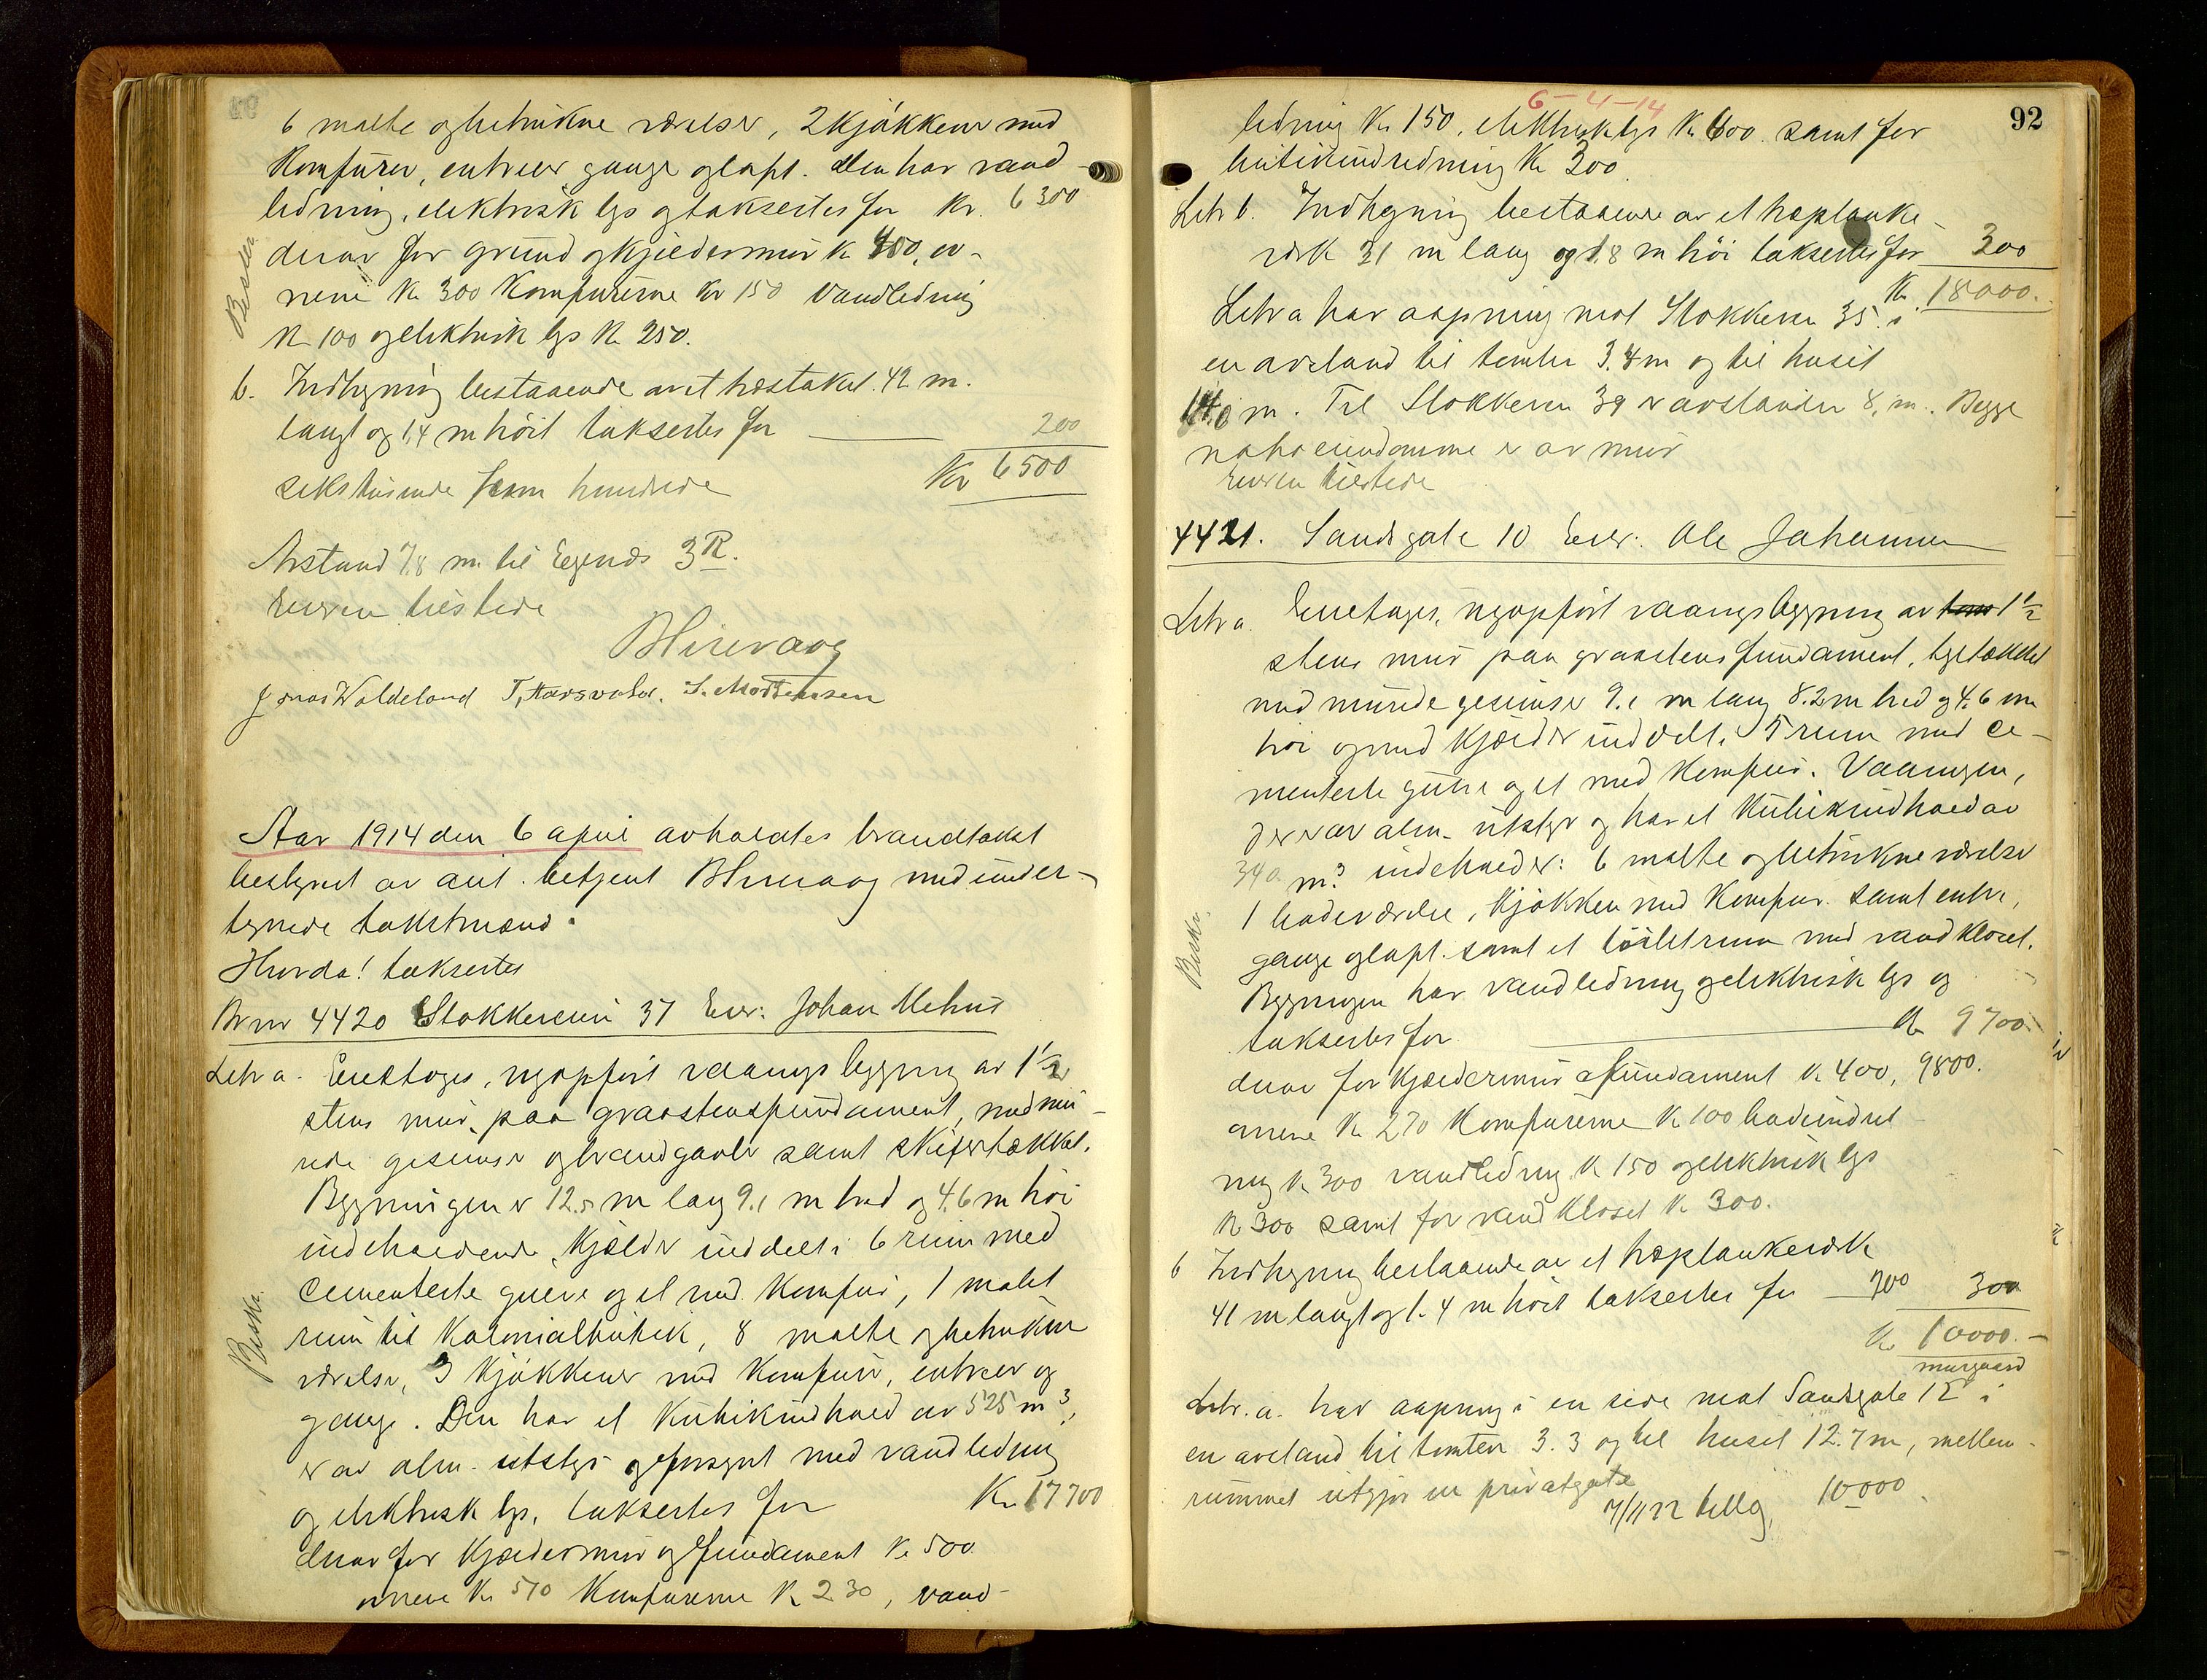 6 malte og betrukne værelser, 2 kjøkkener med
Komfurer, entreer gange og lofst. Den har vand-
ledning, elektrisk lys og taksertes for Kr. 6300
derav for grund og kjeldermur Kr 400, ov-
nene Kr 300 Komfurerne Kr 150 Vandledning
Kr 100 og elektrisk lys Kr 250.
b. Indhegning bestaaende av et træstaket 42 m.
langt og 1,4 m høit taksertes for 200
sekstusinde fem hundrede Kr 6500
Avstand 7.8 m til Egenæs 3 R.
Eieren tilstede
BHirevaag
Jonas Waldeland T. Aarsvold. S. Mortensen
Aar 1914 den 6 april avholdtes brandtakst
bestyret av aut. betjent BHirevaag med under-
tegnede takstmænd.
Hvorda! taksertes
Br nr 4420 Stokkeveien 37 Eier: Johan Mehus
Litr a. Enetages, nyopført vaaningsbygning av 1 1/2
stens mur, paa graastensfundament, med mu-
rede gesimser og brandgavle samt skifertækket.
Bygningen er 12.5 m lang 9.1 m bred og 4.6 m høi
indeholdende, Kjælder inddelt i 6 rum med
cementerte gulve og et med Komfur, 1 malt
rum til Kolonialbutik, 8 malte og betrukne
værelser, 3 kjøkkener med Komfurer, entreer og
gange. Den har et Kubikindhold av 525 m3,
er av alm. utstyr og forsynt med vandledning
og elektrisk lys, taksertes for Kr. 17700
derav for Kjældermur og fundament Kr 500
ovnene Kr 510 Komfurerne Kr 230, vand-
92
6-4-14
ledning Kr 150, elektrisk lys Kr 600 samt for
butikindredning Kr 300
Litr b. Indhegning bestaaende av et træplanke-
værk 31 m lang og 1.8 m høi taksertes for 300
Kr. 18000.
Litr a har aapning mot Stokkevn 35 i
en avstand til tomten 3.4 m og til huset
m. Til Stokkeveien 39 er avstanden 8, m. Begge
naboeiendomme er av mur
Eieren tilstede
4421. Sandsgate 10 Eier: Ole Johannesen
Litr a. Enetages, nyopført vaaningsbygning av 1 1/2
stens mur paa graastensfundament, tegltækket
med murede gesimser 9.1 m lang 8.2 m bred og 4.6 m
høi og med Kjælder inddelt i 5 rum med ce-
menterte gulve og et med Komfur. Vaaningen,
der er av alm. utstyr og har et Kubikindhold av
340 m3 indeholder: 6 malte og betrukne værelser
1 badeværelse, Kjøkken med Komfur samt entre,
gange og loft samt et toiletrum med vandkloset.
Bygningen har vandledning og elektrisk lys og
taksertes for Kr 9700
derav for Kjældermur & fundament Kr 400, 9800.
ovnene Kr 270 Komfurerne Kr 100 badeindret-
ning Kr 300 vandledning Kr 150 og elektrisk lys
Kr 300 samt for vandkloset Kr 300.
b Indhegning bestaaende av et træplankeværk
41 m langt og 1.4 m høit taksertes for 200 300
Kr 10000.-
murgaard
Litr. a. har aapning i en side mot Sandsgate 12 i
en avstand til tomten 3.3 og til huset 12.7 m, mellem-
rummet utgjør en privatgate
7/11 22 tillg. 10000